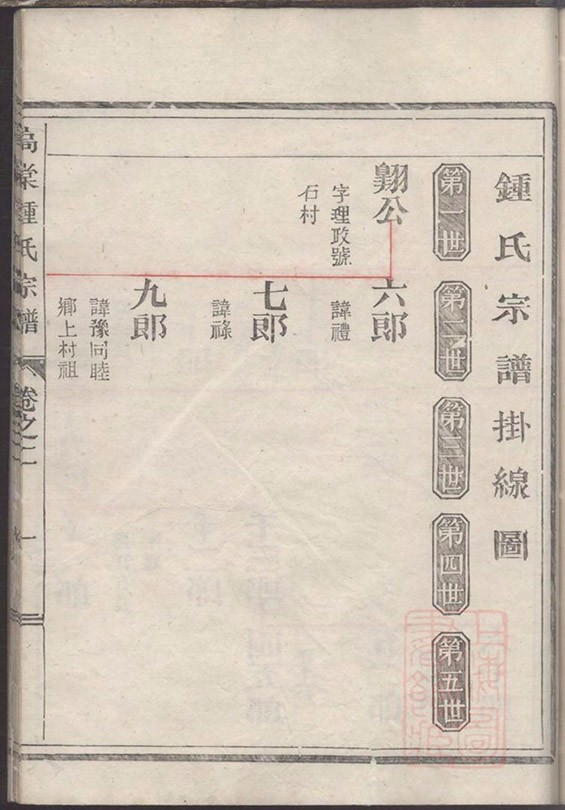 鍾氏宗譜掛線圖
第一世
第二世
第三世
第四世
第五世
翺公
字理政號
石村
六郎
諱禮
七郎
諱祿
九郎
諱豫同睦
鄉上村祖
棠鍾氏宗譜
卷之二
一